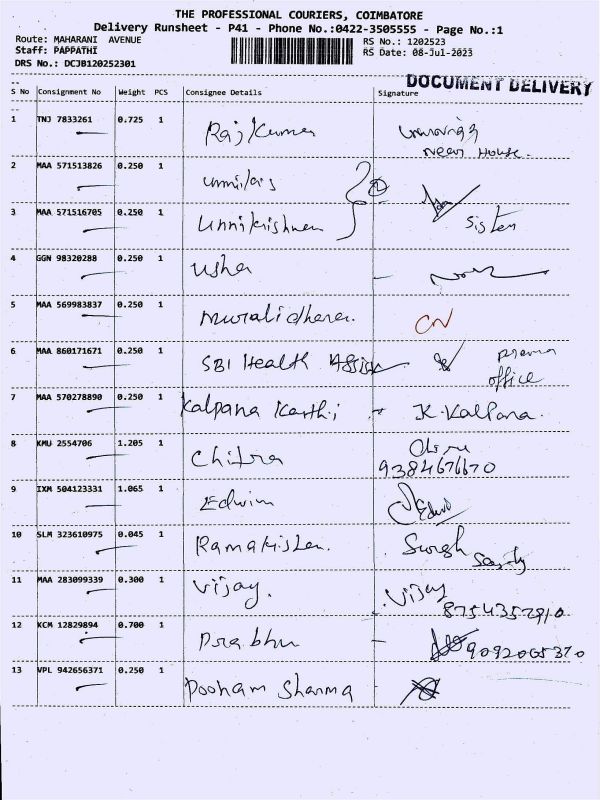 THE PROFESSIONAL COURIERS, COIMBATORE
Delivery Runsheet - P41 - Phone No.:0422-3505555 - Page No.:1
Route: MAHARANI AVENUE
RS No.: 1202523
Staff: PAPPATHI
RS Date: 08-Jul-2023
DRS No.: DCJB120252301
DOCUMENT DELIVERY
S No Consignment No Weight PCS Consignee Details Signature
1 TNJ 7833261 0.725 1 Raj Kumar
Near House.
2 MAA 571513826 0.250 1
3 MAA 571516705 0.250 1 Unnikrishnan Sister
4 GGN 98320288 0.250 1 Usha
5 MAA 569983837 0.250 1 Muralidharan. CN
6 MAA 860171671 0.250 1 SBI Health
office
7 MAA 570278890 0.250 1 Kalpana Karthi - K. Kalpana.
8 KMU 2554706 1.205 1 Chitra
9384676670
9 IXM 504123331 1.065 1 Edwin
10 SLM 323610975 0.045 1
11 MAA 283099339 0.300 1 Vijay. Vijay
8754352910
12 KCM 12829894 0.700 1 Prabhu - 9092065370
13 VPL 942656371 0.250 1 Pooham Sharma